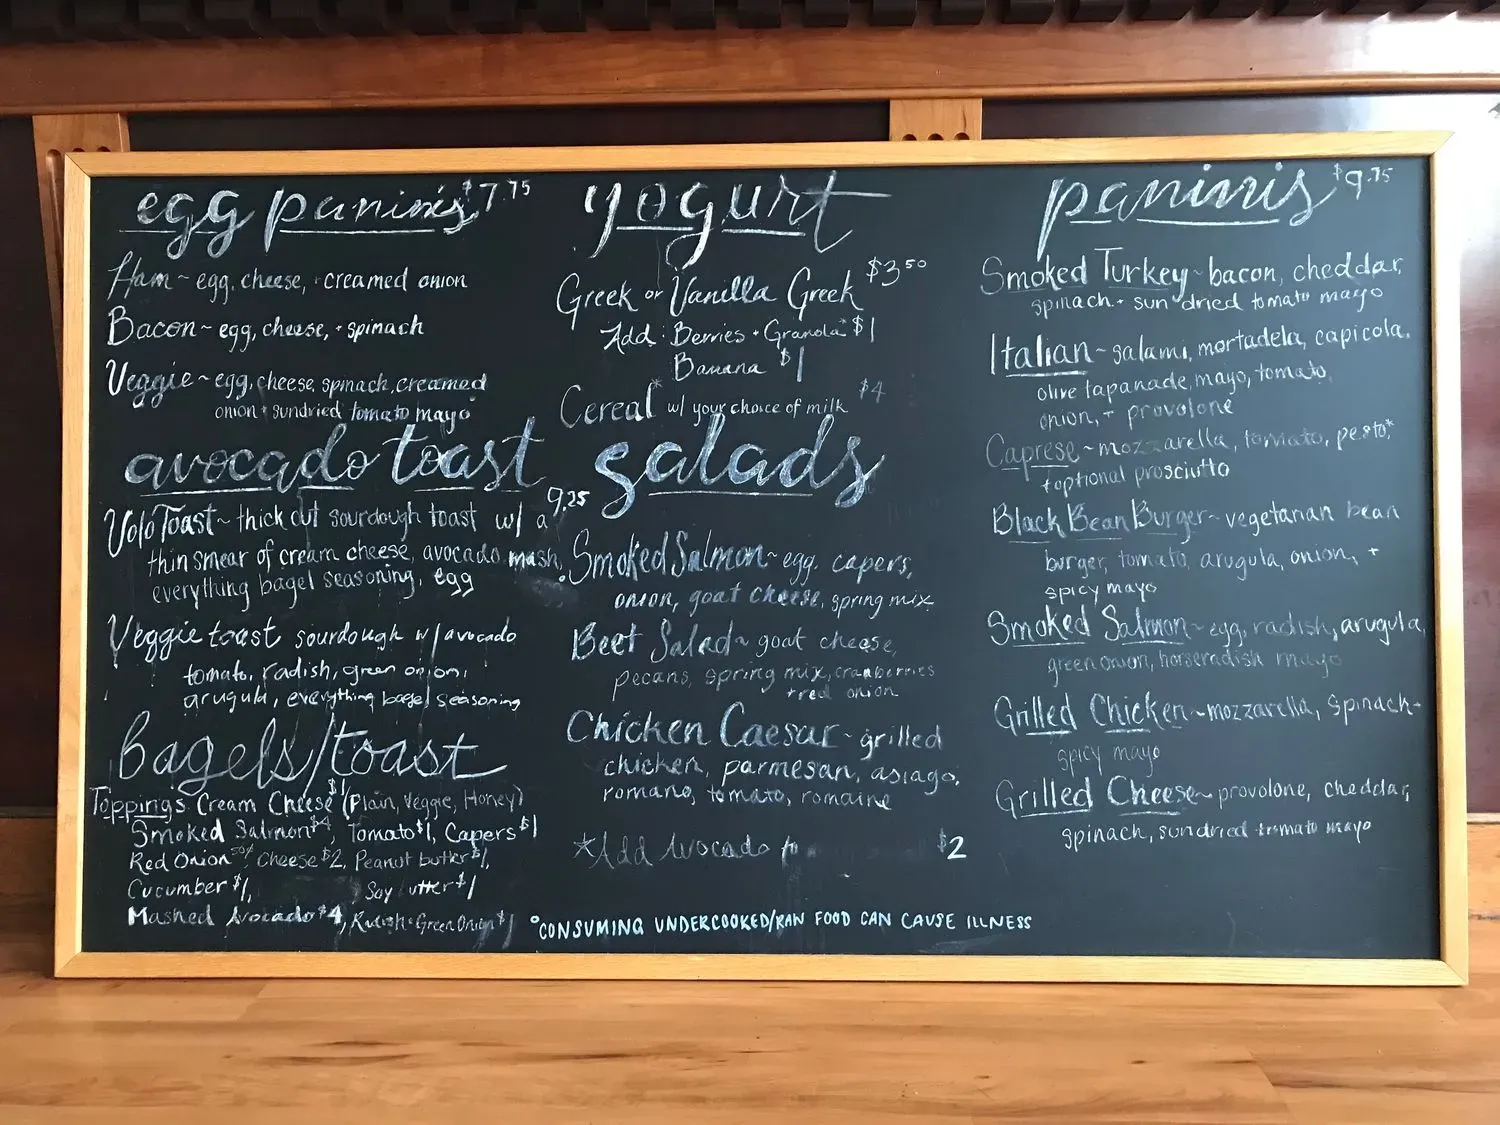 egg paninis $7.75
Ham ~ egg, cheese, + creamed onion
Bacon ~ egg, cheese, + spinach
Veggie ~ egg, cheese, spinach, creamed
onion + sundried tomato mayo
avocado toast
9.25
Yolo Toast ~ thick cut sourdough toast w/ a
thin smear of cream cheese, avocado mash,
everything bagel seasoning, egg
Veggie toast sourdough w/ avocado
tomato, radish, green onion,
arugula, everything bagel seasoning
bagels/toast
Toppings Cream Cheese $1 (Plain, Veggie, Honey)
Smoked Salmon $4, Tomato $1, Capers $1
Red Onion 50¢ Cheese $2, Peanut butter $1,
Cucumber $1, Soy butter $1
Mashed Avocado $4, Radish + Green Onion $1
yogurt
Greek or Vanilla Greek $3.50
Add: Berries + Granola* $1
Banana $1
Cereal* w/ your choice of milk $4
salads
Smoked Salmon ~ egg, capers,
onion, goat cheese, spring mix
Beet Salad ~ goat cheese,
pecans, spring mix, cranberries
+ red onion
Chicken Caesar ~ grilled
chicken, parmesan, asiago,
romano, tomato, romaine
*Add Avocado $2
°CONSUMING UNDERCOOKED/RAW FOOD CAN CAUSE ILLNESS
paninis $9.75
Smoked Turkey ~ bacon, cheddar,
spinach + sun dried tomato mayo
Italian ~ salami, mortadela, capicola,
olive tapanade, mayo, tomato,
onion, + provolone
Caprese ~ mozzarella, tomato, pesto*
+optional prosciutto
Black Bean Burger ~ vegetarian bean
burger, tomato, arugula, onion, +
spicy mayo
Smoked Salmon ~ egg, radish, arugula,
green onion, horseradish mayo
Grilled Chicken ~ mozzarella, spinach +
spicy mayo
Grilled Cheese ~ provolone, cheddar,
spinach, sundried tomato mayo